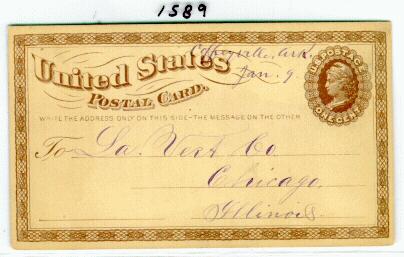 1589
Coffeyville, Ark.
Jan. 9.
United States
U.S. POSTAGE
POSTAL CARD.
ONE CENT
WRITE THE ADDRESS ONLY ON THIS SIDE-THE MESSAGE ON THE OTHER
To La. Vert Co
Chicago,
Illinois.